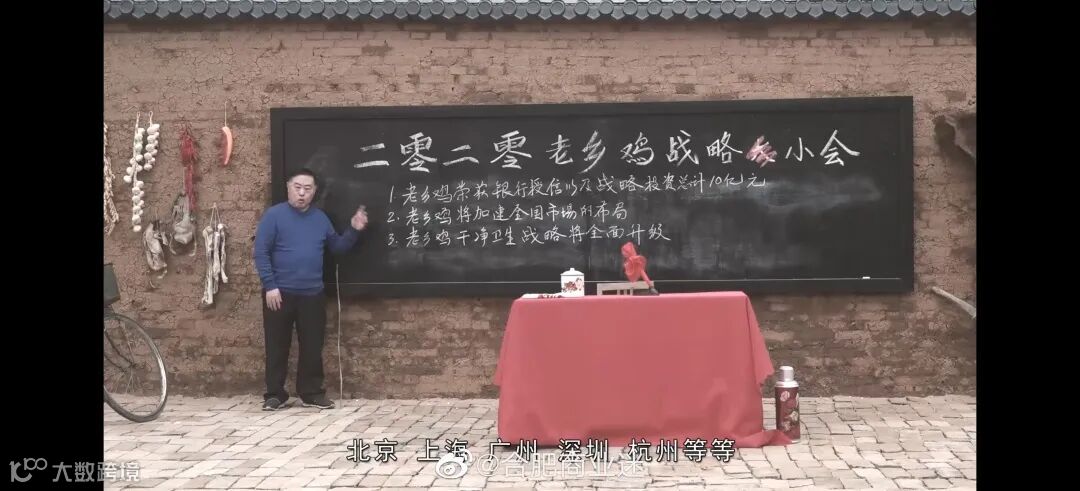 二零二零老乡鸡战略小会
1.老乡鸡荣获银行授信以及战略投资总计10亿元
2.老乡鸡将加建全国市场的布局
3.老乡鸡干净卫生战略将全面升级
北京 上海 广州 深圳 杭州等等
大数跨境 @合肥商业迷